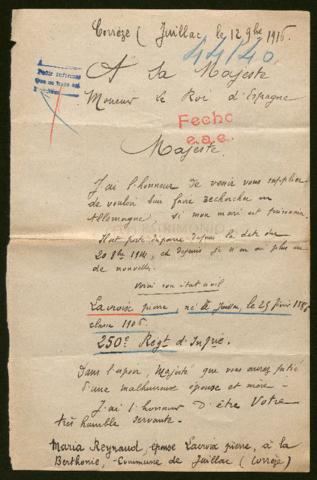 Corrèze ( Juillac, le 12 9bre 1916.
44140.
A Sa Majesté
Pedir informes
Monsieur le Roi d'Espagne
Fecho
e.a.e.
Majesté
J'ai l'honneur de venir vous supplier
de vouloir bien faire rechercher en
Allemagne, si mon mari est prisonnier
Il est porté disparu depuis la date du
20 1914, et depuis je n'en ai plus eu
de nouvelles.
voici son état civil
Lacroix pierre, né à Juillac, le 25 février
classe 1906.
250e Régt d'Infrie.
Dans l'espoir, Majesté que vous aurez pitié
d'une malheureuse épouse et mère -
J'ai l'honneur d'être Votre
très humble servante.
Maria Reynaud, épouse Lacroix pierre, à la
Berthonie, - Commune de Juillac (Corrèze)